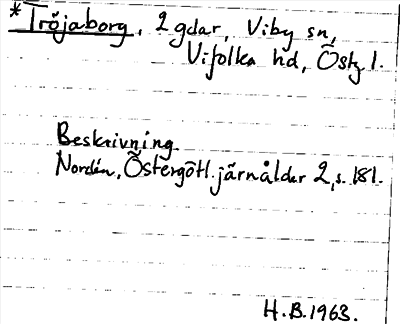 *Tröjaborg, 2 gdar, Viby sn,
Vifolka hd, Östg l.
Beskrivning.
Nordén, Östergötl. järnålder 2, s. 181.
H.B. 1963.